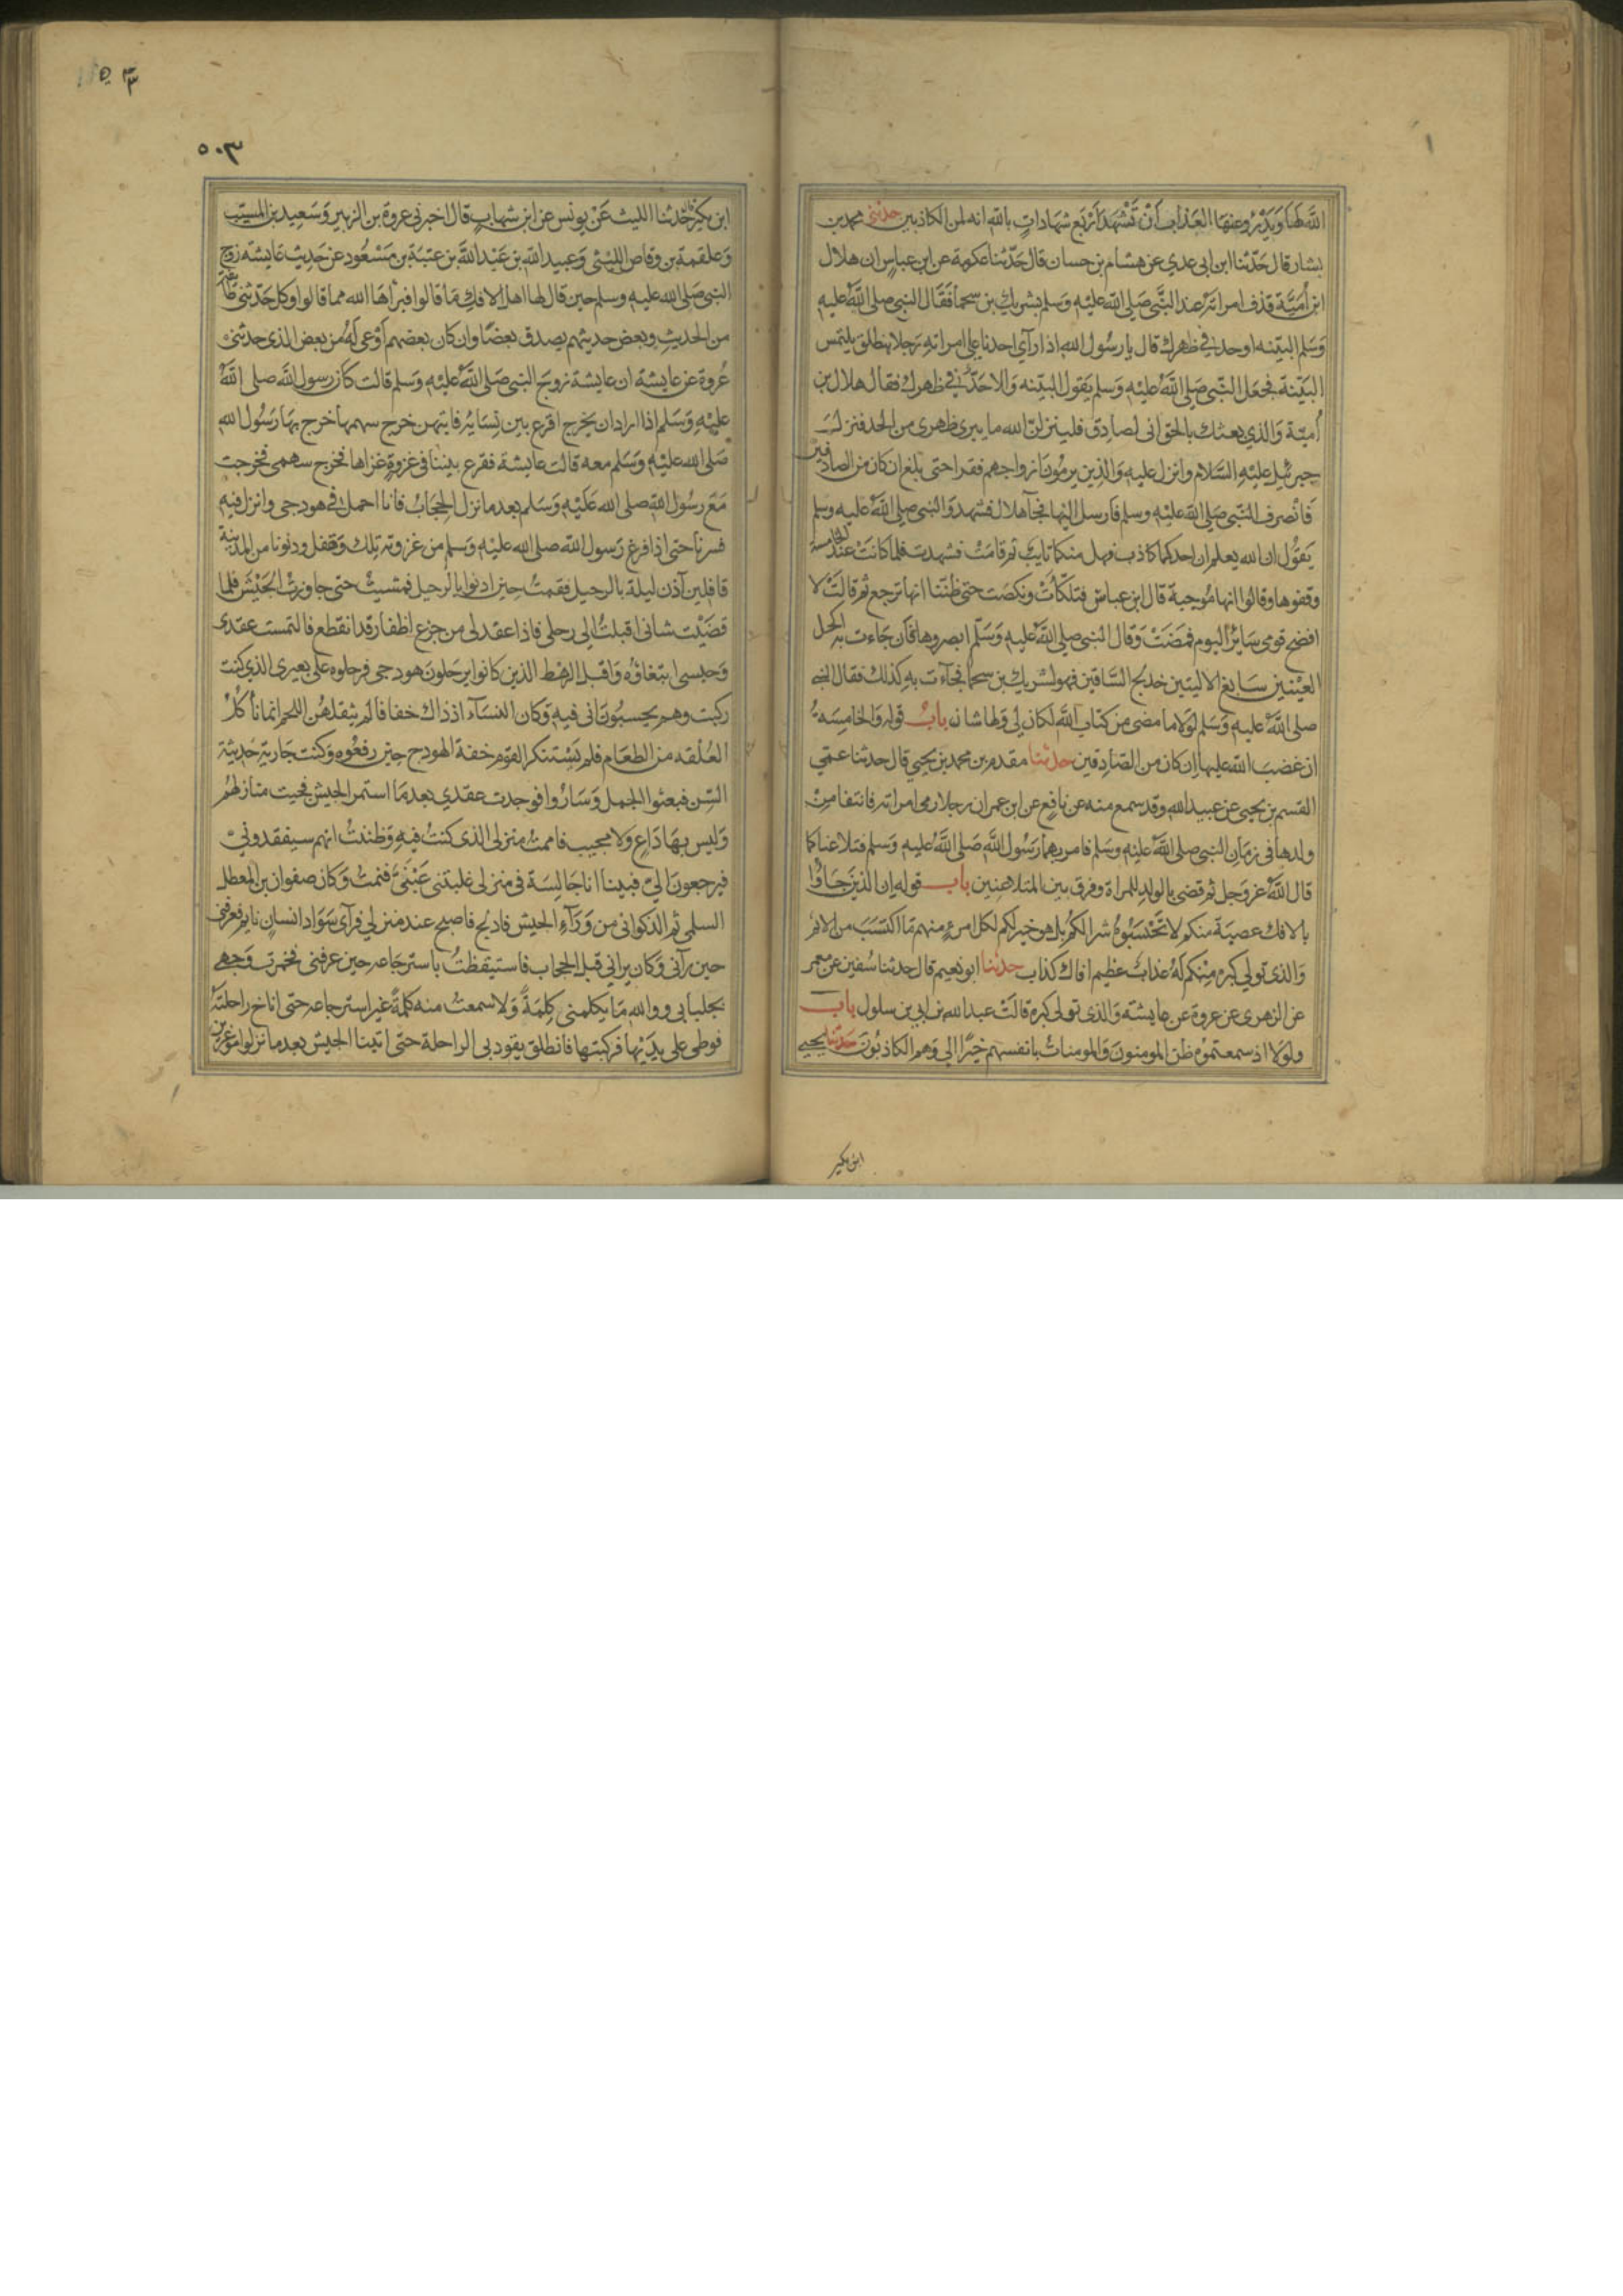 الله لها ويدرؤ عنها العذاب أن تشهد أربع شهادات بالله انه لمن الكاذبين حدثني محمد بن
بشار قال حدثنا ابن ابي عدي عن هشام بن حسان قال حدثنا عكرمة عن ابن عباس ان هلال
ابن أمية قذف امراته عند النبي صلى الله عليه وسلم بشريك بن سحما فقال النبي صلى الله عليه
وسلم البينه او حد في ظهرك قال يا رسول الله اذا رآى احدنا على امراته رجلا ينطلق يلتمس
البينة فجعل النبي صلى الله عليه وسلم يقول البينه والا حد في ظهرك فقال هلال بن
أمية والذي بعثك بالحق انى لصادق فلينزلن الله ما يبرى ظهرى من الحد فنزلت
جبرئيل عليه السلام وانزل عليه والذين يرمون ازواجهم فقرا حتى بلغ ان كان من الصادقين
فانصرف النبي صلى الله عليه وسلم فارسل اليها فجآ هلال فشهد والنبي صلى الله عليه وسلم
يقول ان الله يعلم ان احدكما كاذب فهل منكما تايب ثم قامت فشهدت فلما كانت عند الخامسة
وقفوها وقالوا انها موجبة قال ابن عباس فتلكأت ونكصت حتى ظننا انها ترجع ثم قالت لا
افضح قومى سائر اليوم فمضت وقال النبي صلى الله عليه وسلم ابصروها فان جاءت به اكحل
العينين سابغ الاليتين خدلج الساقين فهو لشريك بن سحما فجآءت به كذلك فقال النبي
صلى الله عليه وسلم لولا ما مضى من كتاب الله لكان لي ولها شان باب قوله والخامسة
ان غضب الله عليها ان كان من الصادقين حدثنا مقدم بن محمد بن يحيى قال حدثنا عمي
القسم بن يحيى عن عبيد الله وقد سمع منه عن نافع عن ابن عمر ان رجلا رمى امراته فانتفا من
ولدها في زمان النبي صلى الله عليه وسلم فامر بهما رسول الله صلى الله عليه وسلم فتلاعنا كما
قال الله عز وجل ثم قضى بالولد للمراة وفرق بين المتلاعنين باب قوله ان الذين جاؤا
بالافك عصبة منكم لا تحسبوه شرا لكم بل هو خير لكم لكل امرئ منهم ما اكتسب من الاثم
والذى تولى كبره منكم له عذاب عظيم افاك كذاب حدثنا ابو نعيم قال حدثنا سفين عن معمر
عن الزهرى عن عروة عن عايشة والذى تولى كبره قالت عبد الله بن ابي بن سلول باب
ولولا اذ سمعتموه ظن المومنون والمومنات بانفسهم خيرا الى وهم الكاذبون حدثنا يحيى
ابن بكير
٥٠٣
ابن بكير قال حدثنا الليث عن يونس عن ابن شهاب قال اخبرنى عروة بن الزبير وسعيد بن المسيب
وعلقمة بن وقاص الليثى وعبيد الله بن عبد الله بن عتبة بن مسعود عن حديث عايشة زوج
النبي صلى الله عليه وسلم حين قال لها اهل الافك ما قالوا فبراها الله مما قالوا وكل حدثنى طائفة
من الحديث وبعض حديثهم يصدق بعضا وان كان بعضهم أوعى له من بعض الذى حدثنى
عروة عن عايشة ان عايشة زوج النبي صلى الله عليه وسلم قالت كان رسول الله صلى الله
عليه وسلم اذا اراد ان يخرج اقرع بين نسايه فايتهن خرج سهمها خرج بها رسول الله
صلى الله عليه وسلم معه قالت عايشة فقرع بيننا في غزوة غزاها فخرج سهمى فخرجت
مع رسول الله صلى الله عليه وسلم بعد ما نزل الحجاب فانا احمل في هودجى وانزل فيه
فسرنا حتى اذا فرغ رسول الله صلى الله عليه وسلم من غزوته تلك وقفل ودنونا من المدينة
قافلين آذن ليلة بالرحيل فقمت حين اذنوا بالرحيل فمشيت حتى جاوزت الجيش فلما
قضيت شانى اقبلت الى رحلى فاذا عقد لى من جزع اظفار قد انقطع فالتمست عقدى
وحبسى ابتغاؤه واقبل الرهط الذين كانوا يرحلون هودجى فرحلوه على بعيرى الذى كنت
ركبت وهم يحسبون انى فيه وكان النساء اذ ذاك خفافا لم يثقلهن اللحم انما نأكل
العلقه من الطعام فلم يستنكر القوم خفة الهودج حين رفعوه وكنت جارية حديثة
السن فبعثوا الجمل وساروا فوجدت عقدي بعد ما استمر الجيش فجيت منازلهم
وليس بها داع ولا مجيب فاممت منزلى الذى كنت فيه وظننت انهم سيفقدوني
فيرجعون الي فبينا انا جالسة في منزلى غلبتنى عينى فنمت وكان صفوان بن المعطل
السلمى ثم الذكوانى من ورآء الجيش فادلج فاصبح عند منزلي فرآى سواد انسان نايم فعرفنى
حين رآنى وكان يرانى قبل الحجاب فاستيقظت باسترجاعه حين عرفنى فخمرت وجهى
بجلبابى ووالله ما يكلمنى كلمة ولا سمعت منه كلمة غير استرجاعه حتى اناخ راحلته
فوطى على يديها فركبتها فانطلق يقود بى الراحلة حتى اتينا الجيش بعد ما نزلوا موغرين